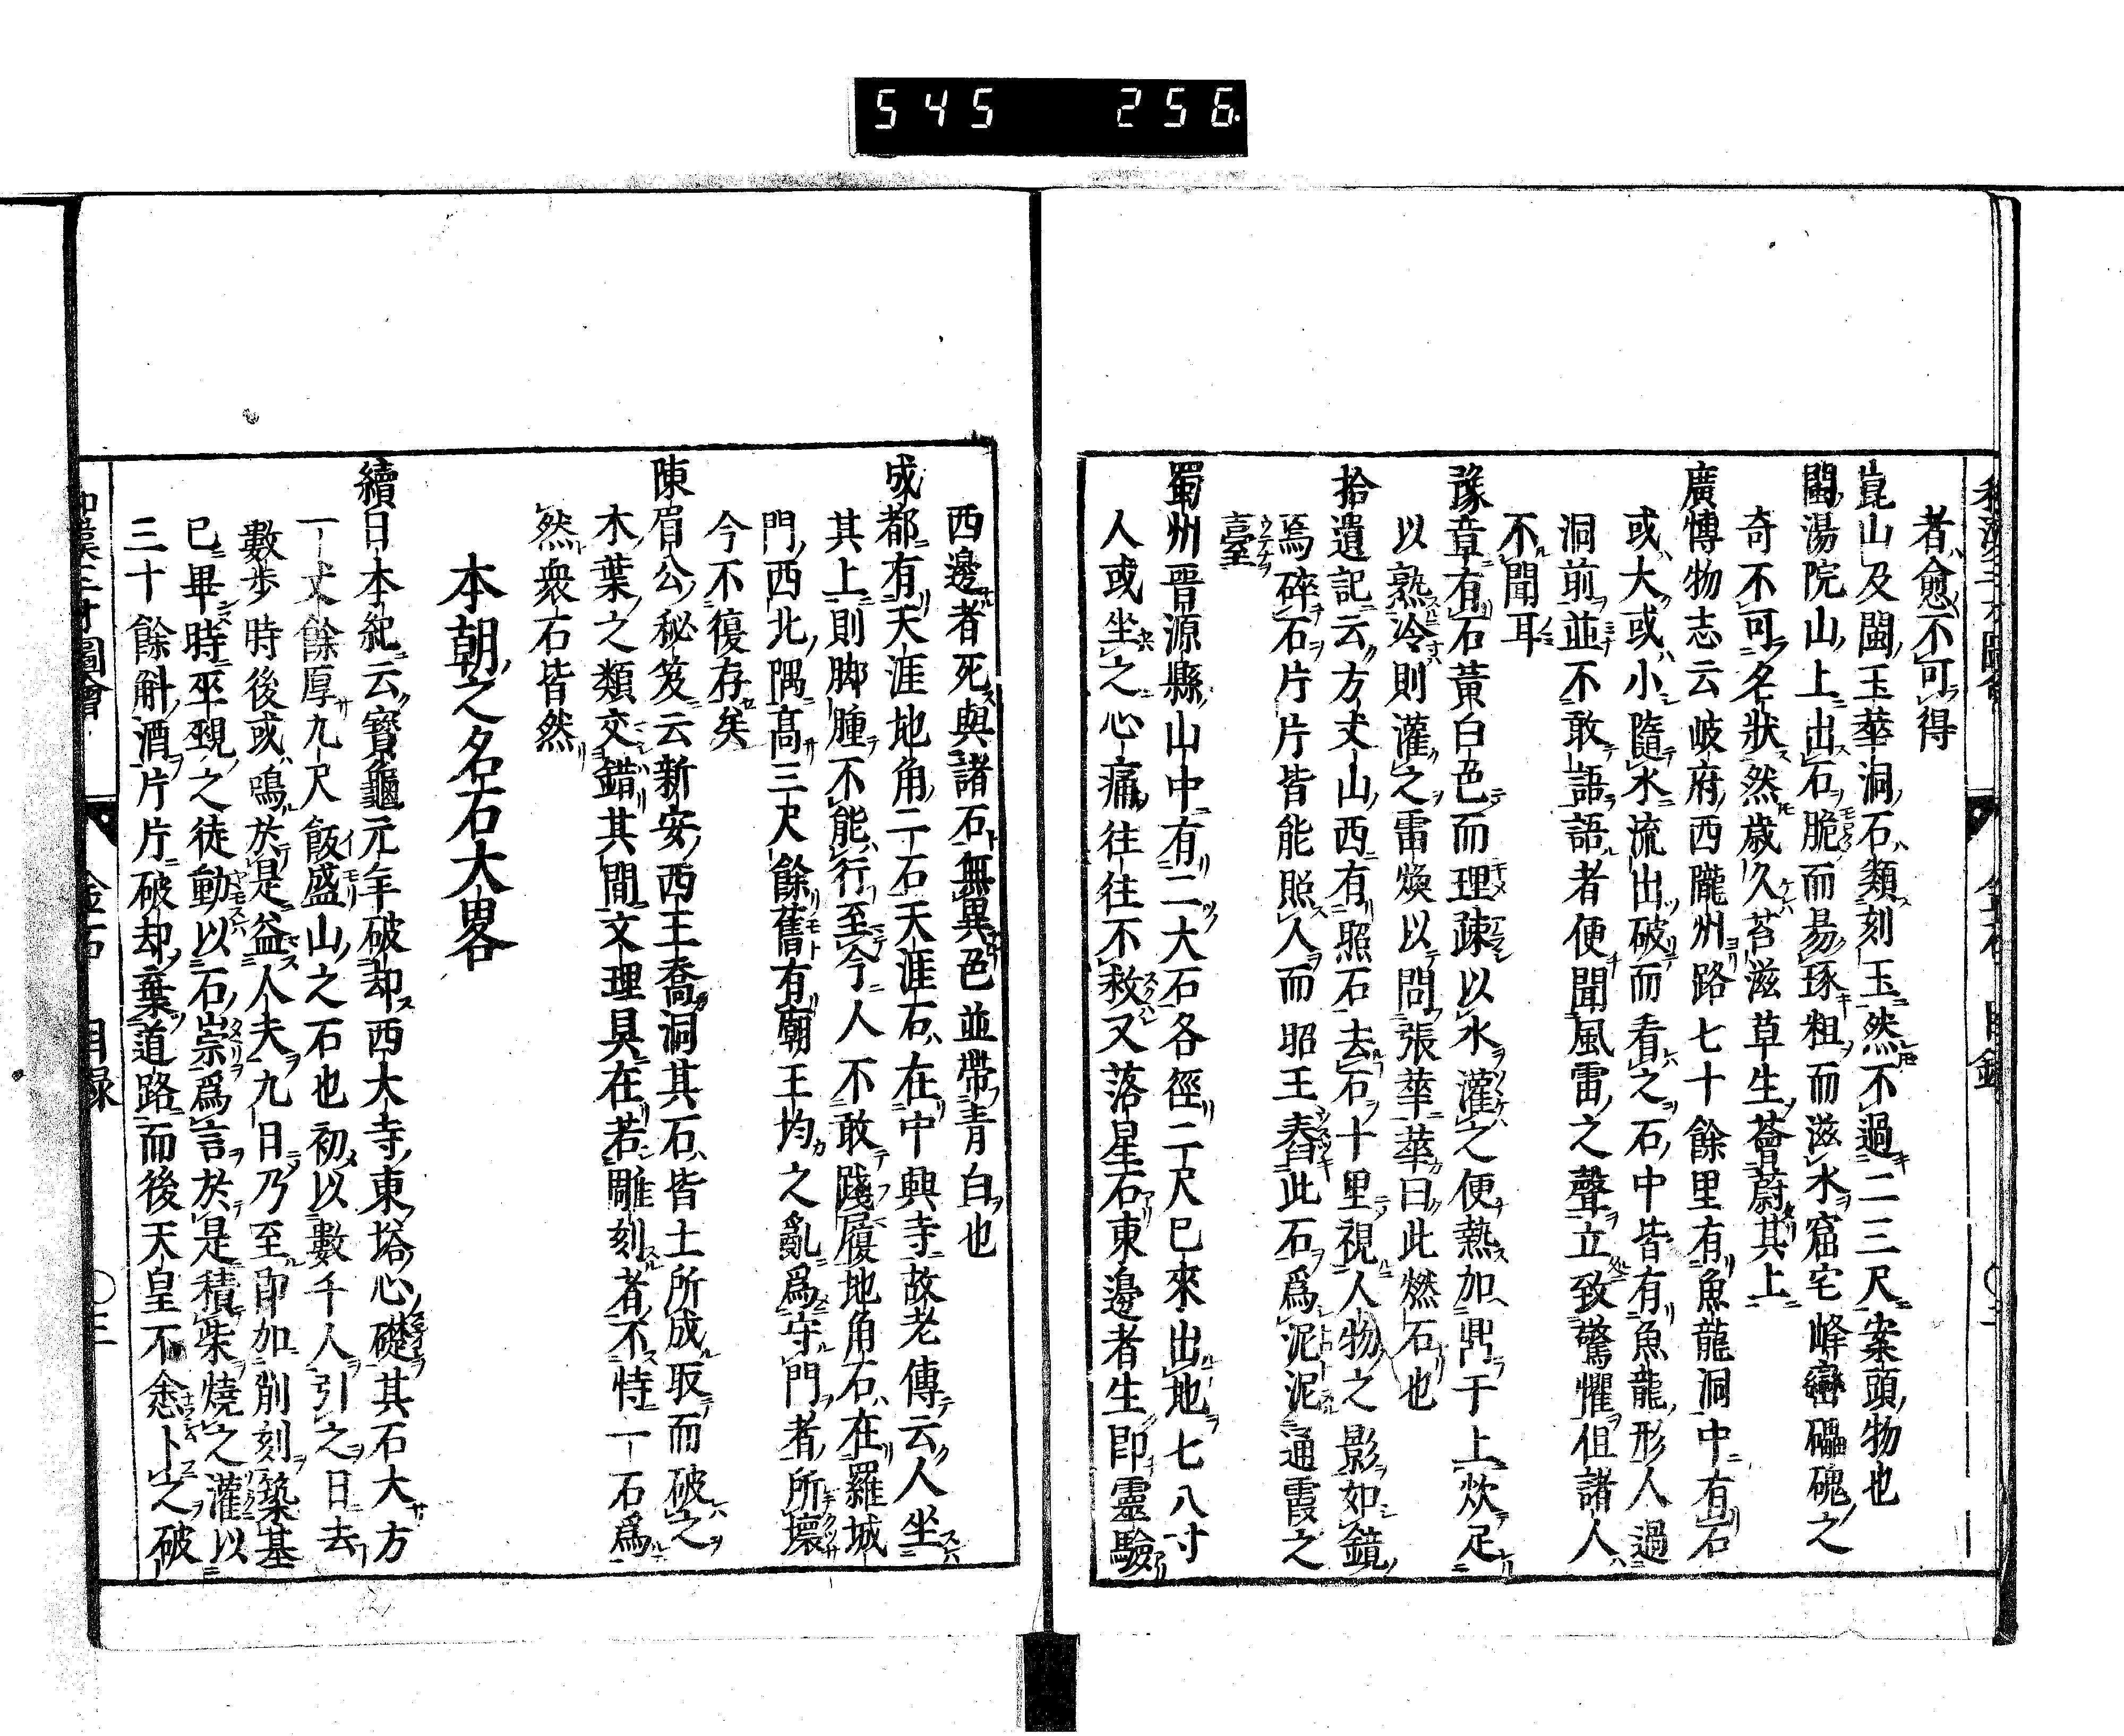 545 256
者愈不可得
崑山及閩玉華洞石類刻玉然不過二三尺案頭物也
閩湯院山上出石脆而易琢粗而滋水窟宅峰巒礧磈之
奇不可名狀然歲久苔滋草生薈蔚其上
廣博物志云岐府西隴州路七十餘里有魚龍洞中有石
或大或小隨水流出破而看之石中皆有魚龍形人過
洞前並不敢語語者便聞風雷之聲立致驚懼但諸人
不聞耳
豫章有石黃白色而理疎以水灌之便熱加鼎于上炊足
以熟冷則灌之雷煥以問張華華曰此燃石也
拾遺記云方丈山西有照石去石十里視人物之影如鏡
焉碎石片片皆能照人而昭王舂此石爲泥泥通霞之
臺
蜀州晋源縣山中有二大石各徑二尺已來出地七八寸
人或坐之心痛往往不救又落星石東邊者生即靈驗
西邊者死與諸石無異色並帶青白也
成都有天涯地角二石天涯石在中興寺故老傳云人坐
其上則脚腫不能行至今人不敢踐履地角石在羅城
門西北隅高三尺餘舊有廟王均之亂爲守門者所壞
今不復存矣
陳眉公秘笈云新安西王喬洞其石皆土所成取而破之
木葉之類交錯其間文理具在若雕刻者不特一石爲
然衆石皆然
本朝之名石大畧
續日本紀云寳龜元年破却西大寺東塔心礎其石大方
一丈餘厚九尺飯盛山之石也初以數千人引之日去
數步時後或鳴於是益人夫九日乃至即加削刻築基
已畢時巫覡之徒動以石祟爲言於是積柴燒之灌以
三十餘斛酒片片破却棄道路而後天皇不悆卜之破
和漢三才圖會 金石 目録 〇三